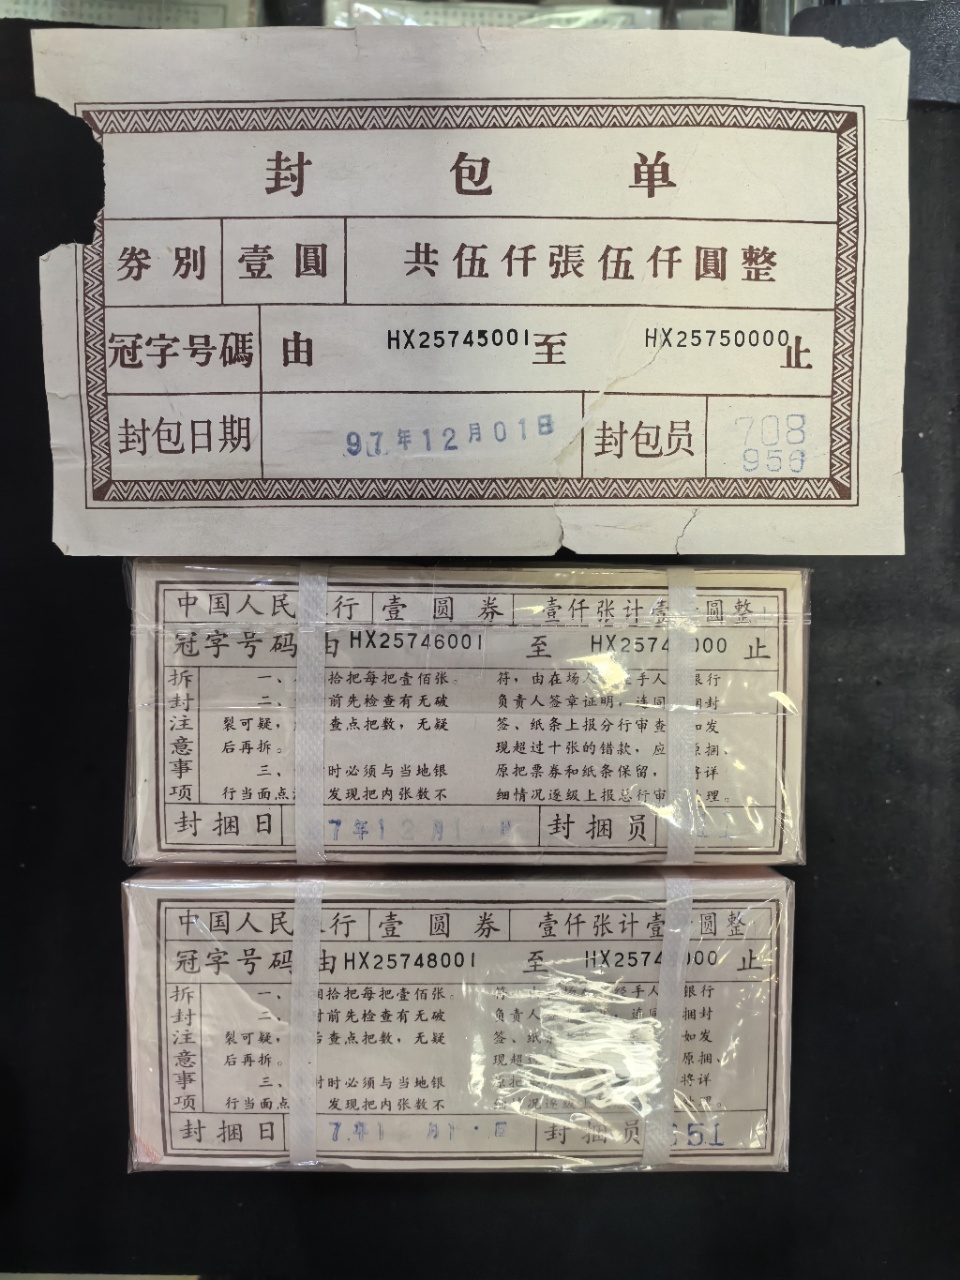 封包单
券别 壹圓 共伍仟張伍仟圓整
冠字号碼 由 HX25745001 至 HX25750000 止
封包日期 97年12月01日 封包员 708
956
中国人民 行 壹圆券 壹仟张计壹 圆整
冠字号码 由 HX25746001 至 HX2574 000 止
拆封注意事项
一、 拾把每把壹佰张。
二、 前先检查有无破
裂可疑, 查点把数,无疑
后再拆。
三、 时必须与当地银
行当面点 发现把内张数不
符,由在场人 手人 银行
负责人签章证明,连同 捆封
签、纸条上报分行审查 如发
现超过十张的错款,应 原捆、
原把票券和纸条保留, 将详
细情况逐级上报总行审 处理。
封捆日 7年12月1 日 封捆员
中国人民 行 壹圆券 壹仟张计壹 圆整
冠字号码 由 HX25748001 至 HX2574 000 止
拆封注意事项
一、 捆拾把每把壹佰张。
二、 封前先检查有无破
裂可疑, 后查点把数,无疑
后再拆。
三、 封时必须与当地银
行当面点 发现把内张数不
手人 银行
负责人 连同 捆封
签、纸 如发
现超 原捆、
将详
逐级上 处理。
封捆日 7年1 月1 日 封捆员 651